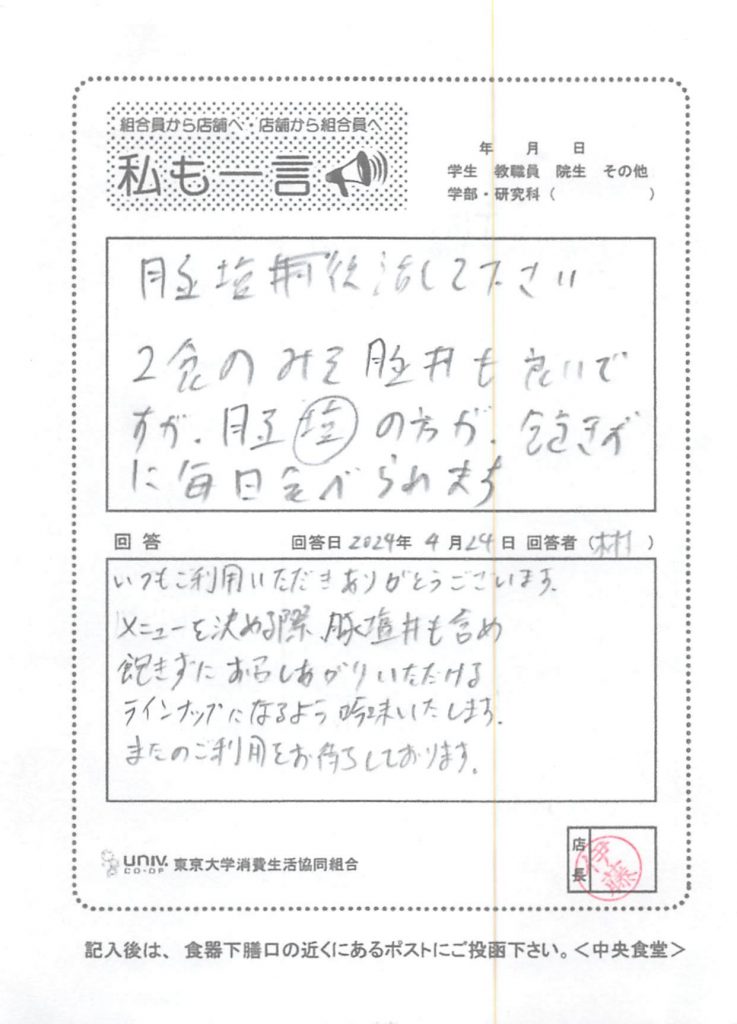 組合員から店舗へ・店舗から組合員へ
私も一言
年 月 日
学生 教職員 院生 その他
学部・研究科（ ）
豚塩丼復活して下さい
2食のみそ豚丼も良いで
すが、豚塩の方が、飽きず
に毎日食べられます
回答 回答日 2024年 4月24日 回答者（木村）
いつもご利用いただきありがとうございます。
メニューを決める際、豚塩丼も含め
飽きずにお召しあがりいただける
ラインナップになるよう吟味いたします。
またのご利用をお待ちしております。
UNIV. CO-OP 東京大学消費生活協同組合
店長 伊藤
記入後は、食器下膳口の近くにあるポストにご投函下さい。＜中央食堂＞